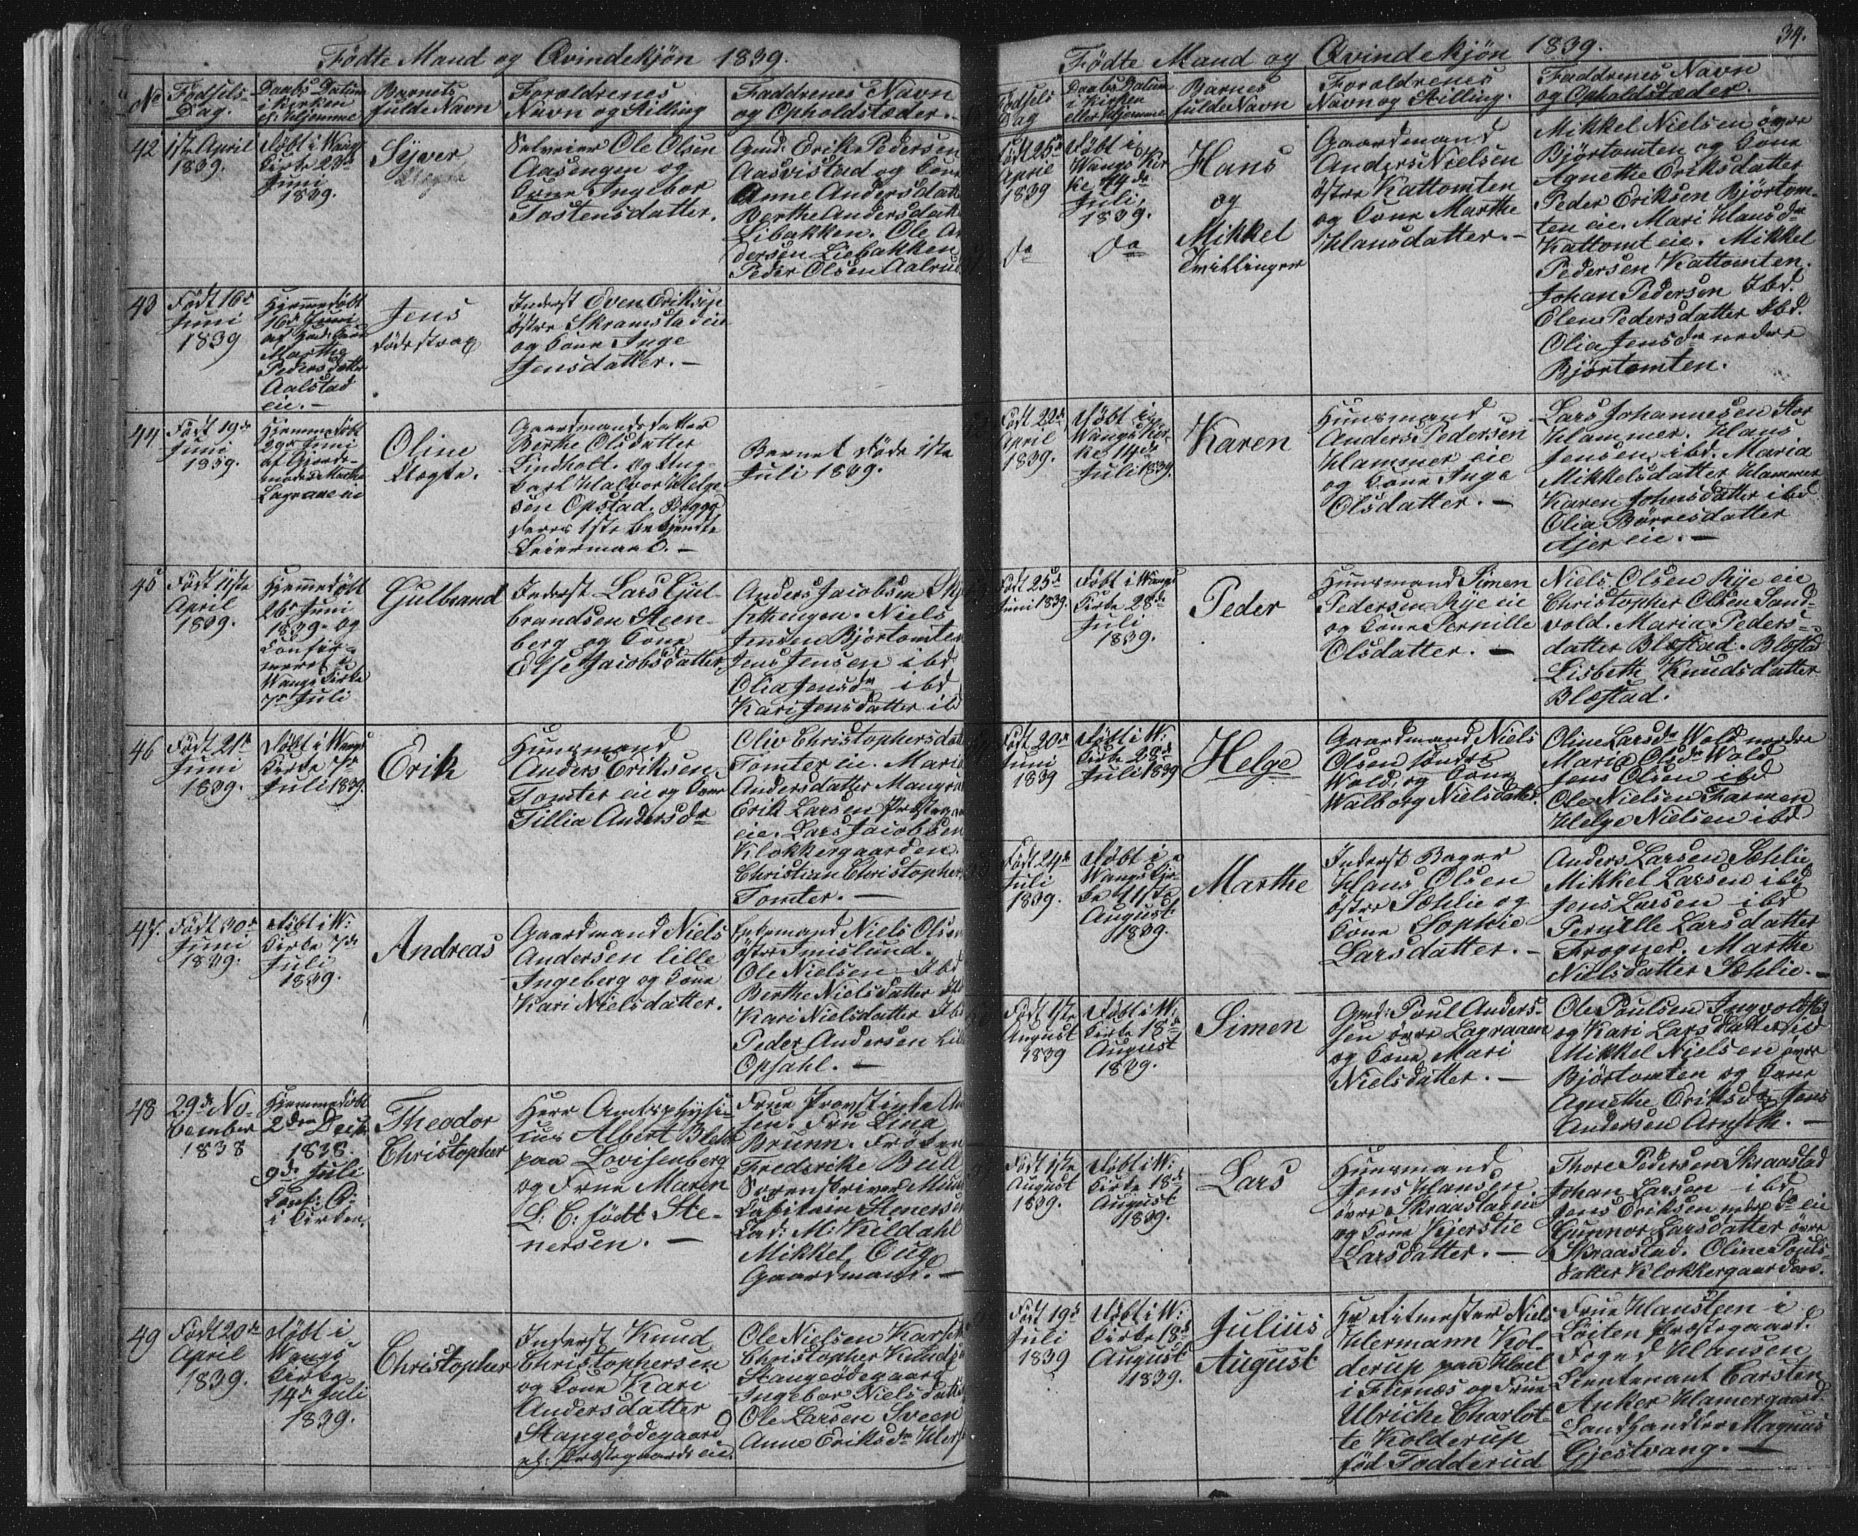 Fødte Mand og Qvindekjøn 1839.
No
Fødsels-
Dag.
Daabs Datum
i Kirken
el: Hjemme
Barnets
fulde Navn
Forældrenes
Navn og Stilling
Faddrenes Navn
og Opholdstæder.
42
17de April
1839.
Døbt i Wangs
Kirke 23de
Juni
1839.
Syver
Selveier Ole Olsen
Aasingen og
Kone Ingebor
Tostensdatter.
Gmd. Erik Pedersen
Aasvistad og Kone
Anne Andersdatter
Berthe Andersdatter
Libakken. Ole An
dersen Liebakken
Peder Olsen Aalrud
43
Født 16de
Juni
1839
Hjemmedøbt
16de Juni
af
Marthe
Pedersdatter
Aalstad
eie.-
Jens
dødstrax
Inderst Even Eriksen
østre Skramstad eie
og Kone Inge
Jensdatter. -
44
Født 19de
Juni
1839.
Hjemmedøbt
Juni
af Gjorde-
moder Marthe
Lagraae eie
Oline
Uægte.
Gaardmandsdatter
Berthe Olsdatter
Lindholt. og Ung-
karl Halvor Helge
sen Opstad. Begge
deres 1ste bekjendte
Leiermaal. -
Barnet døde 1ste
Juli 1839.
45
Født 11te
April
1839.
Hjemmedøbt
26de Juni
1839. og
Confir-
meret i
Wangs Kirke
7de Juli
Gulbrand
Inderst Lars Gul-
brandsen Steen-
berg og Kone
Else Jacobsdatter
Anders Jacobsen
Niels
Jensen Bjørtomten
Jens Jensen ibd
Olia Jensdr ibd
Kari Jensdatter ibd
46
Født 21de
Juni
1839.
Døbt i Wangs
Kirke 7de
Juli 1839.
Erik
Huusmand
Anders Eriksen
Tomter eie og Kone
Tillia Andersdr
Oliv Christophersdatter
Tomter eie. Marie
Andersdatter Mangrud
Erik Larsen Præstegaard
eie. Lars Jacobsen
Klokkergaarden.
Christian Christophersen
Tomter. -
47.
Født 30de
Juni
1839.
Døbt i W:
Kirke 7de
Juli
1839.
Andreas
Gaardmand Niels
Andersen lille
Ingeberg og Kone
Kari Nielsdatter.
Niels Olsen
østre Imislund.
Ole Nielsen Ibd
Berthe Nielsdatter Ibd
Kari Nielsdatter Ibd
Peder Andersen Lille
Opsahl. -
48
29de No-
vember
1838
Hjemmedøbt
2den Decb
1838.
9de Juli
Conf: D:
i Kirken
Theodor
Christopher
Herr Amtsphysi-
cus Albert Blehr
paa Lovisenberg
og Frue Maren
L: C: født Ste-
nersen. -
Frue Provstinde
Fru Lina
Brunn. Frøken
Fredrikke Bull
Sorenskriver Munch
Capitain Stenersen
Cad: M: Kildahl
Mikkel Ouge
Gaardmand. -
49
Født 20de
April
1839.
Døbt i
Wangs
Kirke
14de Juli
1839.
Christopher
Inderst Knud
Christophersen
og Kone Kari
Andersdatter
Stangeødegaard
el: Præstegaards eie.
Ole Nielsen
Christopher Knudsen
Stangeødegaard
Ingebor Nielsdatter
Ole Larsen Sveen
Anne Eriksdr
34.
Fødte Mand og Qvindekjøn 1839.
Fødsels
Dag
Daabs Datum
i Kirken
eller Hjemme
Barnes
fulde Navn
Forældrenes
Navn og Stilling.
Faddrenes Navn
og Opholdstæder.
Født 25de
April
1839
Døbt i
Wangs Kir
ke 14de
Juli
1839.
do
do
Hans
og
Mikkel
Tvillinger
Gaardmand
Anders Nielsen
østre Kattomten
og Kone Marthe
Hansdatter. -
Mikkel Nielsen øvre
Bjørtomten og Kone
Agnethe Eriksdatter
Peder Eriksen Bjørtom-
ten eie. Mari Hansdr
Kattomt eie. Mikkel
Pedersen Kattomten.
Johan Pedersen Ibd.
Elen Pedersdatter Ibd.
Olia Jensdr nedre
Bjørtomten.
Født 22de
April
1839.
Døbt i
Wangs Kir-
ke 14de
Juli 1839.
Karen
Huusmand
Anders Pedersen
Hammer eie
og Kone Inge
Olsdatter. -
Lars Johannesen Stor
Hammer. Hans
Jensen ibd. Maria
Mikkelsdatter Hammer
Karen Johnsdatter ibd
Olia Børresdatter
Ajer eie. -
Født 25de
Juni 1839.
Døbt i Wangs
Kirke 28de
Juli
1839.
Peder
Huusmand Simen
Pedersen Rye eie
og Kone Pernille
Olsdatter. -
Niels Olsen Rye eie
Christopher Olsen Sand-
vold. Maria Peders-
datter Blæstad. Blæstad
Lisbeth Knudsdatter
Blæstad.
Født 20de
Juni
1839
Døbt i W:
Kirke 28de
Juli 1839
Helge
Gaardmand Niels
Olsen søndre
Wold, og Kone
Walborg Nielsdatter.
Oline Larsdr Wold nordre
Marie Olsdr Wold
Jens Olsen ibd
Ole Nielsen Farmen
Helge Nielsen ibd
Født 24de
Juli
1839.
Døbt i
Wangs Kir
ke 11te
August
1839.
Marthe
Inderst Bager
Hans Olsen
østre Sæhlie og
Kone Sophie
Larsdatter. -
Anders Larsen Sæhlie
Mikkel Larsen ibd
Jens Larsen ibd
Pernille Larsdatter
Frogner. Marthe
Nielsdatter Sæhlie. -
Født 1ste
August
1839
Døbt i W:
Kirke 18de
August
1839.
Simen
Gmd: Poul Anders-
sen øvre Lagraaen
og Kone Mari
Nielsdatter. -
Ole Paulsen
og Kari Larsdatter ibd
Mikkel Nielsen øvre
Bjørtomten og Kone
Agnethe Eriksdr Jens
Andersen Arnseth. -
Født 1ste
August
1839.
Døbt i W:
Kirke 18de
August
1839.
Lars
Huusmand
Jens Hansen
øvre Skraastad eie
og Kone Kjerstie
Larsdatter. -
Thore Pedersen Skraastad
Johan Larsen ibd
Jens Eriksen nedre do eie
Gunnor Larsdatter øvre
Skraastad. Oline Pouls-
datter Klokkergaarden.
Født 19de
Juli
1839
Døbt i W:
Kirke 18de
August
1839.
Julius
August
Hr Ritmester Niels
Hermann Kol-
derup paa Hoel
i Furnæs og Frue
Ulriche Charlot
te Kolderup
fød Todderud
Frue Hansteen i
Løiten Præstegaard.
Foged Hansen
Lieutenant Carsten
Anker Hamergaard.
Landhandler Magnus
Gjestvang. -